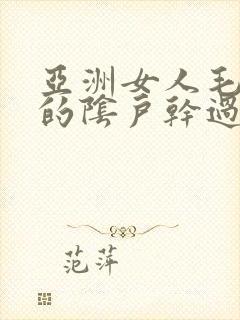 亞洲女人毛
的陰戶幹過
范萍